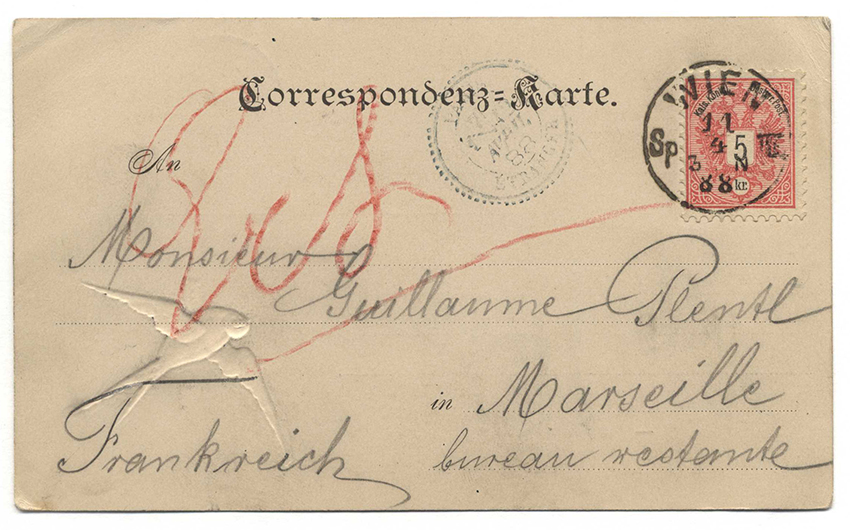 Correspondenz=Karte.
WIEN
11
4
88
5
kr.
ETRANGER
88
An
Monsieur
Guillaume Plentl
in Marseille
Frankreich
bureau restante